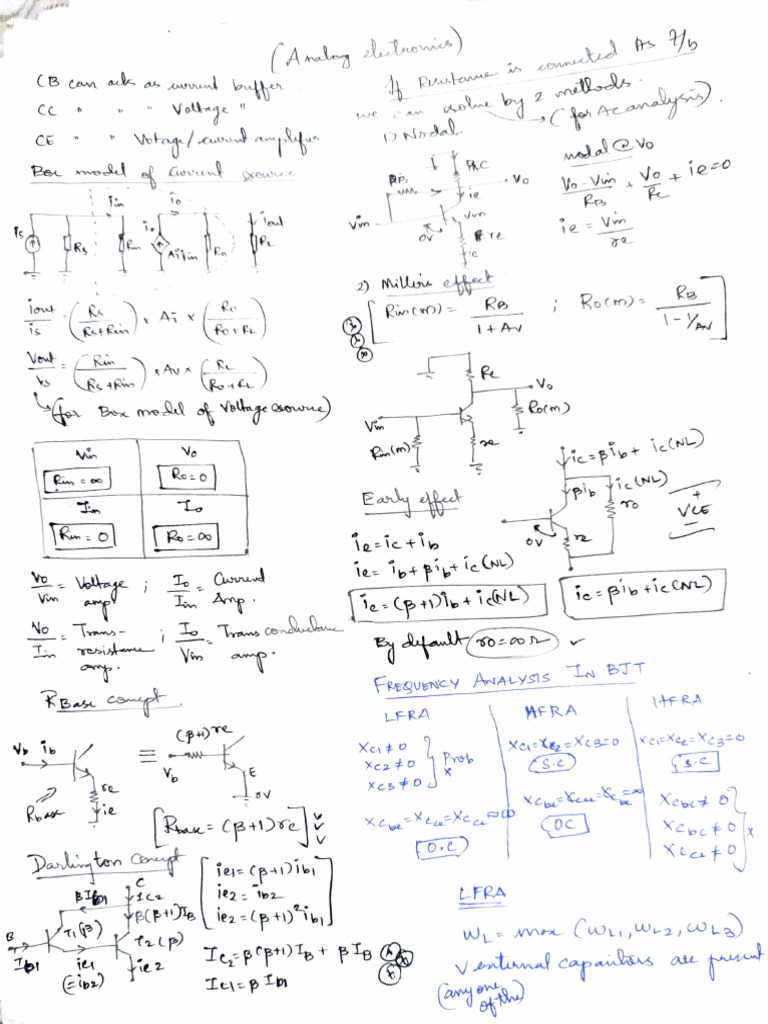 (Analog electronics)
CB can acts as current buffer
CC " " " Voltage "
CE " " Votage/current amplifier
Box model of Current source
is
Rs
iin
Rin
io
Ai iin
Ro
iout
RL
iout/is = (Rs/(Rs+Rin)) × Ai × (Ro/(Ro+RL))
Vout/vs = (Rin/(Rs+Rin)) × Av × (RL/(Ro+RL))
(for Box model of Voltage source)
Vin Vo
Rin = ∞ Ro = 0
Iin Io
Rin = 0 Ro = ∞
Vo/Vin = Voltage amp ; Io/Iin = Current Amp.
Vo/Iin = Trans-resistance amp. ; Io/Vin = Trans conductance amp.
RBase concept
Vb ib
re
ie
Rbase
≡
(β+1)re
Vb
E
0V
[Rbase = (β+1)re]
Darlington concept
βIb1
C
IC2
β(β+1)IB
B
Ib1
T1(β)
T2(β)
ie1
(=ib2)
ie2
ie1 = (β+1)ib1
ie2 = ib2
ie2 = (β+1)²ib1
Ic2 = β(β+1)IB + βIB
Ic1 = βIb1
If Resistance is connected As F/b
we can solve by 2 methods.
(for Ac analysis).
1) Nodal
RB
Vo
ie
Vin
Vin
0V
re
ie
nodal @ Vo
(Vo-Vin)/RB + Vo/Rc + ie = 0
ie = Vin/re
2) Millers effect
[Rin(m) = RB/(1+Av) ; Ro(m) = RB/(1-1/Av)]
Rc
Vo
Ro(m)
Vin
Rin(m)
re
Early effect
ie = ic + ib
ie = ib + βib + ic(NL)
ie = (β+1)ib + ic(NL)
ic = βib + ic(NL)
βib
ic(NL)
ro
0V
re
+
VCE
-
ic = βib + ic(NL)
By default ro = ∞ Ω ✓
FREQUENCY ANALYSIS IN BJT
LFRA
XC1 ≠ 0
XC2 ≠ 0
XC3 ≠ 0
Prob
x
Xcbe = Xcce = Xcce ≈ ∞
O.C
MFRA
XC1 = XC2 = XC3 = 0
S.C
OC
HFRA
XC1 = XC2 = XC3 = 0
S.C
Xcbc ≠ 0
Xcbc ≠ 0
Xcce ≠ 0
x
LFRA
WL = max (WL1, WL2, WL3)
∨ enternal capacitors are present
(any one of the)